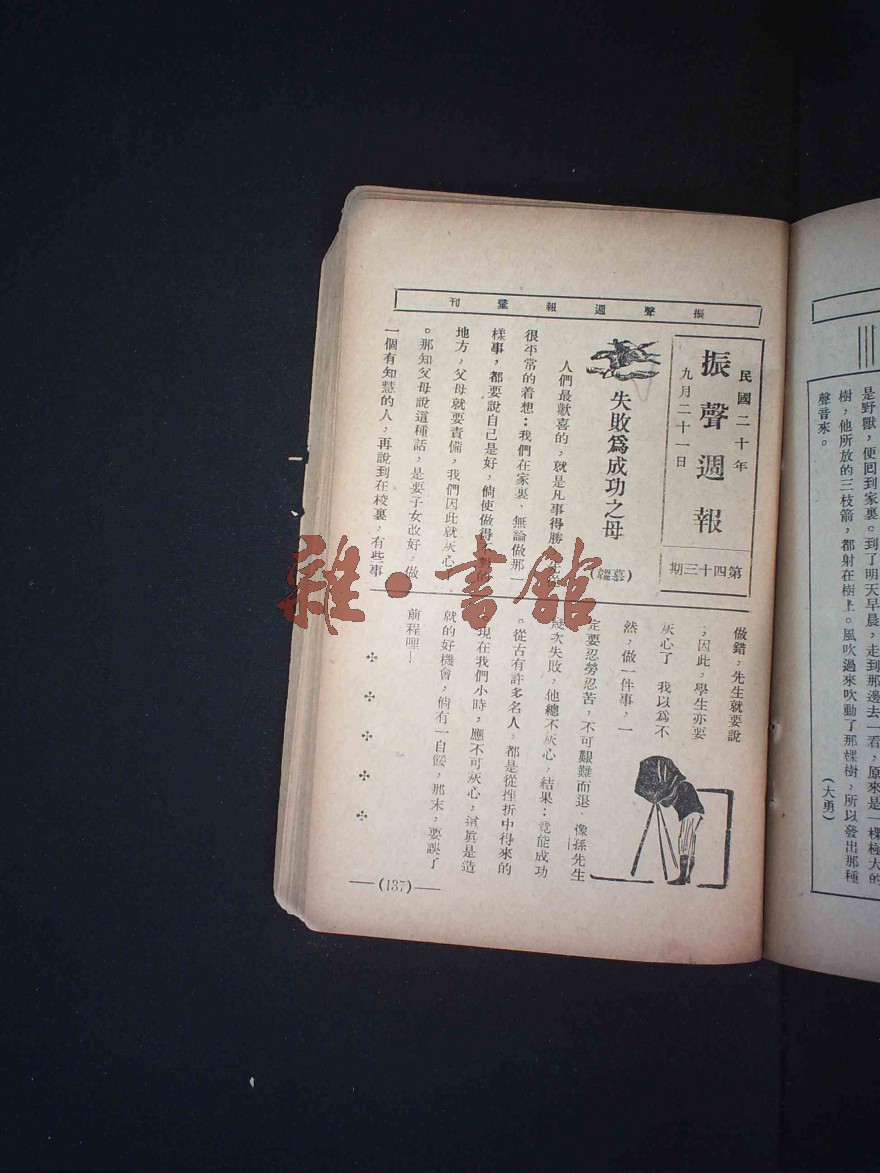 是野獸，便回到家裏。到了明天早晨，走到那邊去一看，原來是一棵極大的
樹，他所放的三枝箭，都射在樹上。風吹過來吹動了那棵樹，所以發出那種
聲音來。
(大勇)
振聲週報彙刊
民國二十年
振聲週報
九月二十一日
第四十三期
失敗爲成功之母
(慕韞)
人們最歡喜的，就是凡事得勝 先從
很平常的着想：我們在家裏、無論做那一
樣事，都要說自己是好，倘使做得不對的
地方，父母就要責備，我們因此就灰心
。那知父母說這種話，是要子女改好，做
一個有知慧的人，再說到在校裏，有些事
做錯，先生就要說
；因此，學生亦要
灰心了 我以爲不
然，做一件事，一
定要忍勞忍苦，不可艱難而退．像孫先生
幾次失敗，他總不灰心，結果：竟能成功
。從古有許多名人，都是從挫折中得來的
現在我們小時，應不可灰心，這眞是造
就的好機會，倘有一自餒，那末，要誤了
前程哩！
(137)
雜·書館